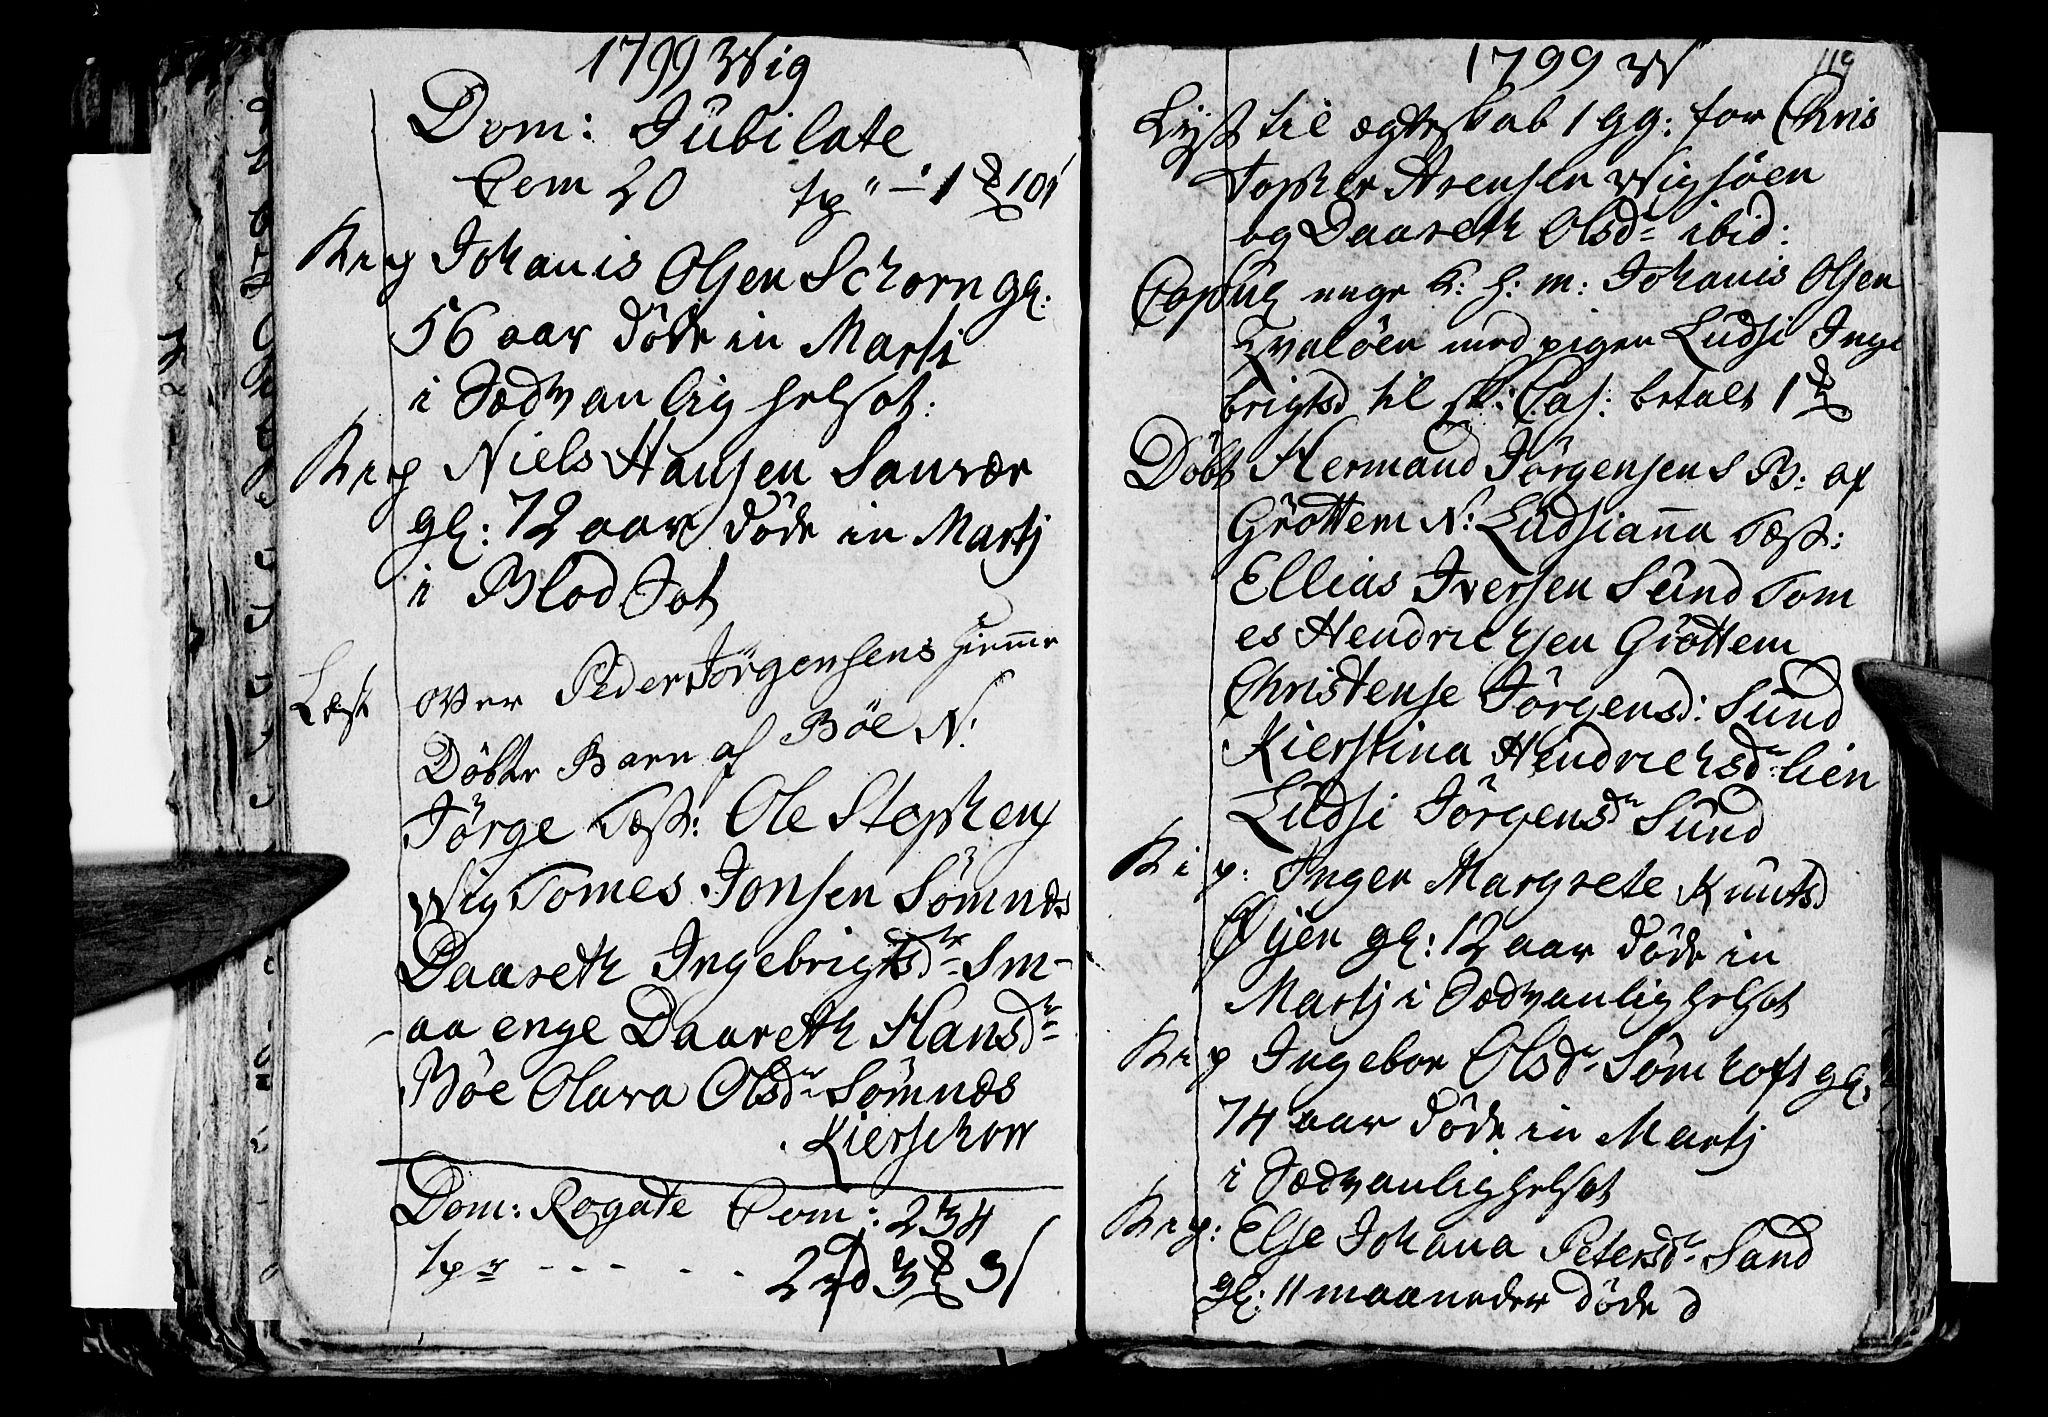 1799 Wig
Dom: Jubilate
Com 20 tp" - 1 ₰ 10s
K: i p Johanis Olsen Schorn gl:
56 aar döde in Martj
i Sædvanlig helsot:
K: i p Niels Hansen Sauvær
gl: 72 aar döde in Martj
i Blod Sot
Læst over Peder Jörgensens hieme
Döbte Barn af Böe N:
Jörge Tæst: Ole Stephens
Wig Tomes Jonsen Sömnæs
Daareth Ingebrigtsdr Sm-
aa enge Daareth Hansdr
Böe Olava Olsdr Sömnæs
Kierschow
Dom: Rogate Com: 234
tpr - - - - - 2 rd 3 ₰ 3s
1799 W
119
Lyst til ægteskab 1 gg: for Chris
Topher Arensen Wigsöen
og Daareth Olsdr ibid:
Copul unge K: h: m: Johanis Olsen
Qvalöen med pigen Ludsi Inge
brigtsd til sk: Cas: betalt 1 ₰
Döbt Hermand Jörgensens B: af
Gröttem N: Ludsianna Tæst:
Ellias Iversen Sund Tom
es Hendrichsen Gröttem
Christense Jörgensd: Sund
Kierstina Hendrichsdr: lien
Ludsi Jörgensdr Sund
K: i p: Inger Margrete Knutsd
Øijen gl: 12 aar döde in
Martj i Sædvanlig helsot
K: i p Ingebor Olsdr Sömhoft gl:
74 aar döde in Martj
i Sædvanlig helsot
K: i p: Else Johana Petersdr Sand
gl: 11 maaneder döde d